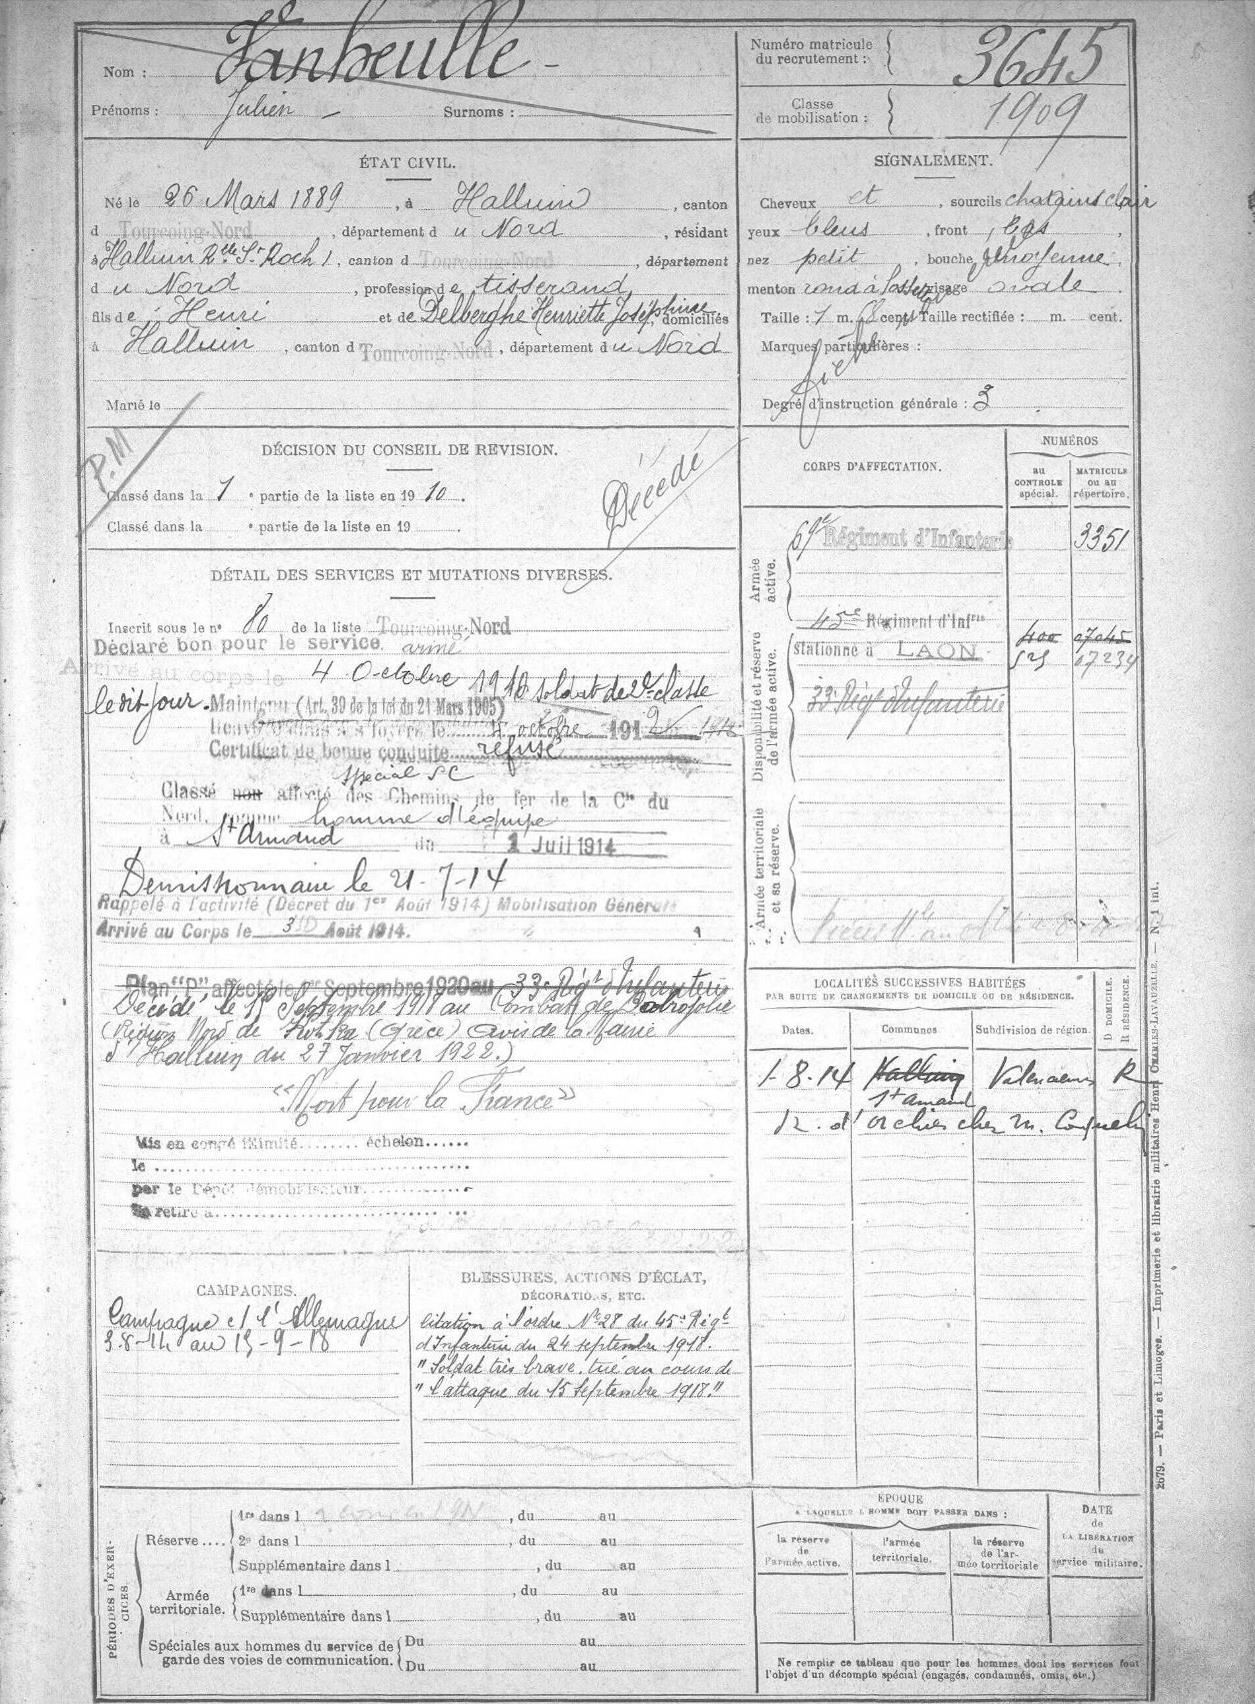 Nom : Vanheulle
Prénoms : Julien Surnoms :
Numéro matricule du recrutement : 3645
Classe de mobilisation : 1909
ÉTAT CIVIL.
Né le 26 Mars 1889, à Halluin, canton
d Tourcoing-Nord, département du Nord, résidant
à Halluin Rlle St Roch 1, canton d Tourcoing-Nord, département
du Nord, profession de tisserand,
fils de Henri et de Delberghe Henriette Joséphine, domiciliés
à Halluin, canton d Tourcoing-Nord, département du Nord
Marié le
SIGNALEMENT.
Cheveux et, sourcils chatains clair
yeux bleus, front bas,
nez petit, bouche moyenne,
menton rond à fossette visage ovale.
Taille : 1 m. cent. Taille rectifiée : m. cent.
Marques particulières :
Degré d'instruction générale : 3.
P.M
DÉCISION DU CONSEIL DE REVISION.
Classé dans la 1e partie de la liste en 1910.
Classé dans la e partie de la liste en 19 .
Décédé
DÉTAIL DES SERVICES ET MUTATIONS DIVERSES.
Inscrit sous le n° 80 de la liste Tourcoing-Nord
Déclaré bon pour le service armé
Arrivé au corps le 4 Octobre 1910 soldat de 2e classe
le dit jour. Maintenu (Art. 39 de la loi du 21 Mars 1905)
foyers le 4 octobre 1912
Certificat de bonne conduite refusé
spécial SC
Classé non affecté des Chemins de fer de la Cie du
Nord, comme homme d'équipe
à St Amand du 1 Juil 1914
Demissionnaire le 21-7-14
Rappelé à l'activité (Décret du 1er Août 1914) Mobilisation Générale
Arrivé au Corps le 3 Août 1914.
Plan "P" affecté le 1er Septembre 1920 au 33e Régt d'Infanterie
Décédé le 15 Septembre 1918 au Combat de
(Région Nord de (Grèce) avis de la Mairie
d'Halluin du 27 Janvier 1922.)
"Mort pour la France"
Mis en congé illimité échelon
le
par le Dépôt démobilisateur
Se retire à
CORPS D'AFFECTATION.
NUMÉROS
au CONTROLE spécial.
MATRICULE ou au répertoire.
Armée active.
69e Régiment d'Infanterie 3351
Disponibilité et réserve de l'armée active.
45e Régiment d'Infrie 400 07045
stationné à LAON 525 07234
33e Régt d'Infanterie
Armée territoriale et sa réserve.
LOCALITÉS SUCCESSIVES HABITÉES
PAR SUITE DE CHANGEMENTS DE DOMICILE OU DE RÉSIDENCE.
Dates. Communes. Subdivision de région. D DOMICILE. R RÉSIDENCE.
1-8-14 Halluin Valenciennes R
St Amand
r. d'orchies chez m.
CAMPAGNES.
Campagne ct l'Allemagne
3-8-14 au 15-9-18
BLESSURES, ACTIONS D'ÉCLAT,
DÉCORATIONS, ETC.
Citation à l'ordre N° 28 du 45e Régt
d'Infanterie du 24 septembre 1918.
"Soldat très brave. tué au cours de
"l'attaque du 15 Septembre 1918."
PÉRIODES D'EXERCICES.
Réserve....
1re dans l , du au
2e dans l , du au
Supplémentaire dans l , du au
Armée territoriale.
1re dans l , du au
Supplémentaire dans l , du au
Spéciales aux hommes du service de garde des voies de communication.
Du au
Du au
ÉPOQUE
A LAQUELLE L'HOMME DOIT PASSER DANS :
la réserve de l'armée active.
l'armée territoriale.
la réserve de l'armée territoriale
DATE de LA LIBÉRATION du service militaire.
Ne remplir ce tableau que pour les hommes dont les services font
l'objet d'un décompte spécial (engagés, condamnés, omis, etc.)
2679. — Paris et Limoges. — Imprimerie et librairie militaires Henri CHARLES-LAVAUZELLE. — N. 1 int.